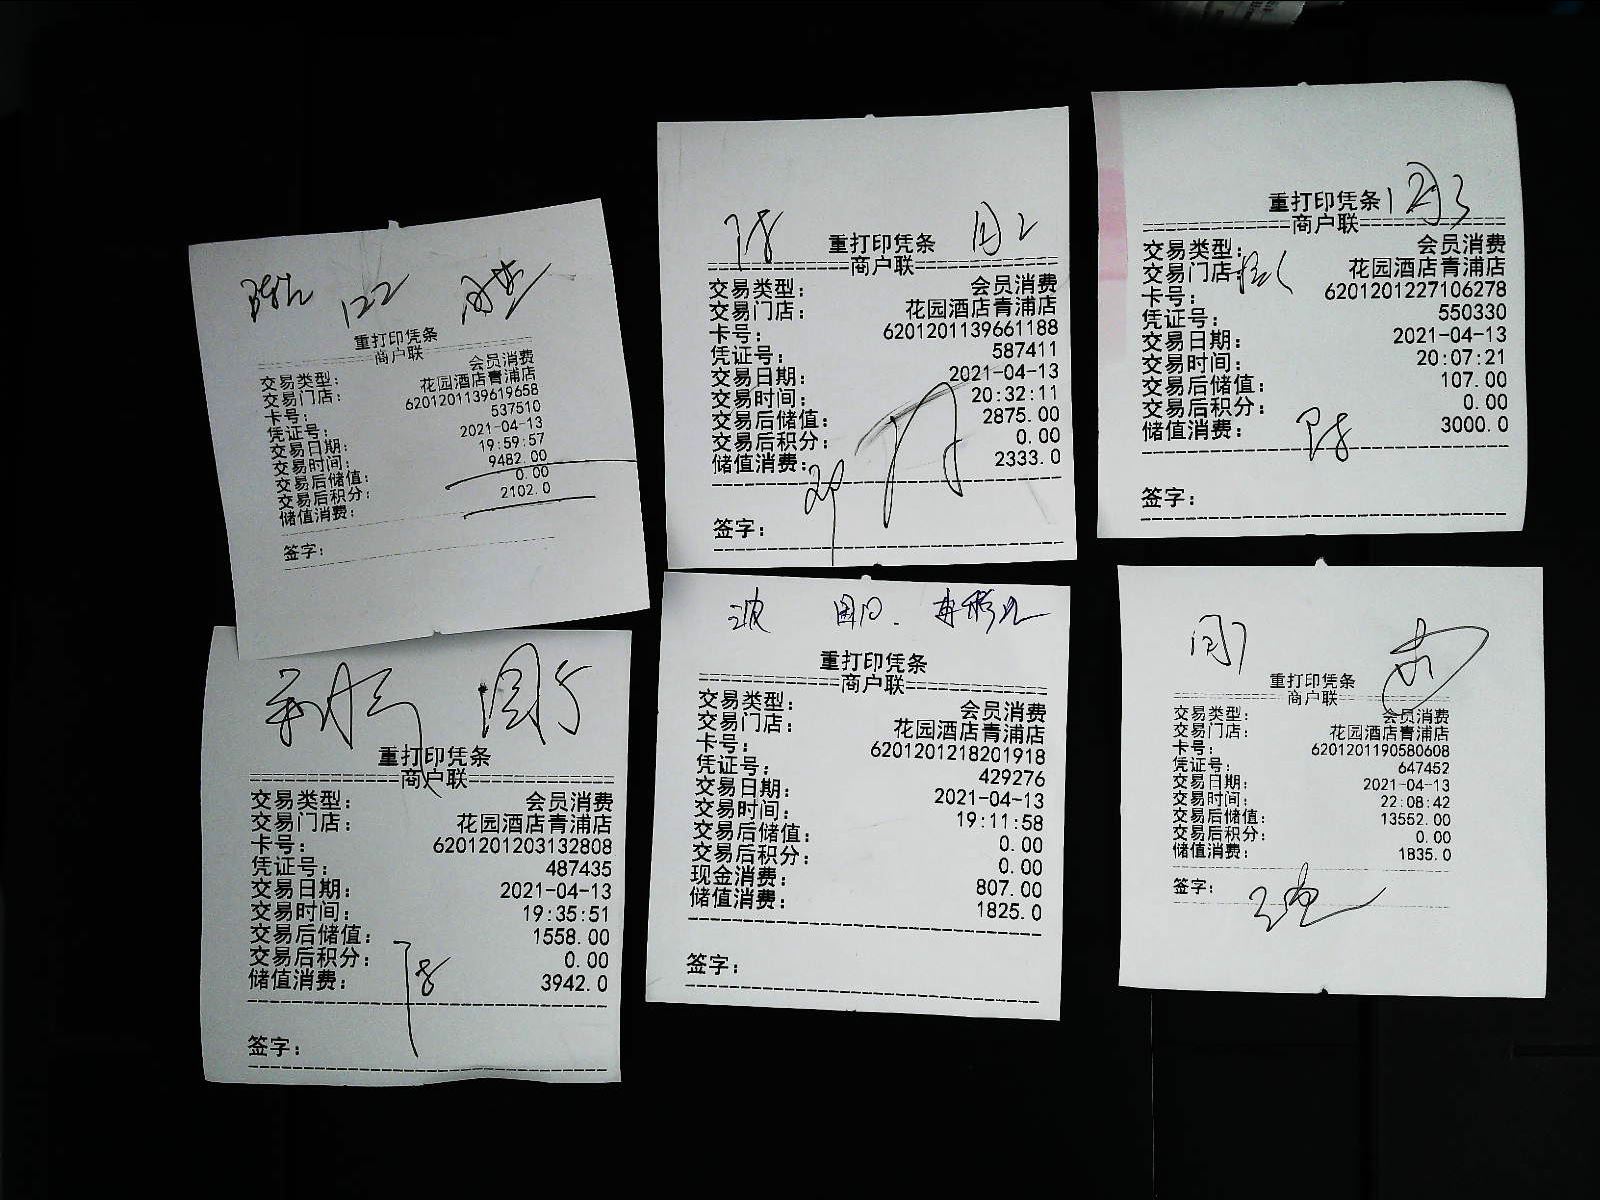 重打印凭条
商户联
交易类型： 会员消费
交易门店： 花园酒店青浦店
卡号： 6201201139619658
凭证号： 537510
交易日期： 2021-04-13
交易时间： 19:59:57
交易后储值： 9482.00
交易后积分： 0.00
储值消费： 2102.0
签字：
重打印凭条
商户联
交易类型： 会员消费
交易门店： 花园酒店青浦店
卡号： 6201201139661188
凭证号： 587411
交易日期： 2021-04-13
交易时间： 20:32:11
交易后储值： 2875.00
交易后积分： 0.00
储值消费： 2333.0
签字：
重打印凭条
商户联
交易类型： 会员消费
交易门店： 花园酒店青浦店
卡号： 6201201227106278
凭证号： 550330
交易日期： 2021-04-13
交易时间： 20:07:21
交易后储值： 107.00
交易后积分： 0.00
储值消费： 3000.0
签字：
重打印凭条
商户联
交易类型： 会员消费
交易门店： 花园酒店青浦店
卡号： 6201201203132808
凭证号： 487435
交易日期： 2021-04-13
交易时间： 19:35:51
交易后储值： 1558.00
交易后积分： 0.00
储值消费： 3942.0
签字：
重打印凭条
商户联
交易类型： 会员消费
交易门店： 花园酒店青浦店
卡号： 6201201218201918
凭证号： 429276
交易日期： 2021-04-13
交易时间： 19:11:58
交易后储值： 0.00
交易后积分： 0.00
现金消费： 807.00
储值消费： 1825.0
签字：
重打印凭条
商户联
交易类型： 会员消费
交易门店： 花园酒店青浦店
卡号： 6201201190580608
凭证号： 647452
交易日期： 2021-04-13
交易时间： 22:08:42
交易后储值： 13552.00
交易后积分： 0.00
储值消费： 1835.0
签字：